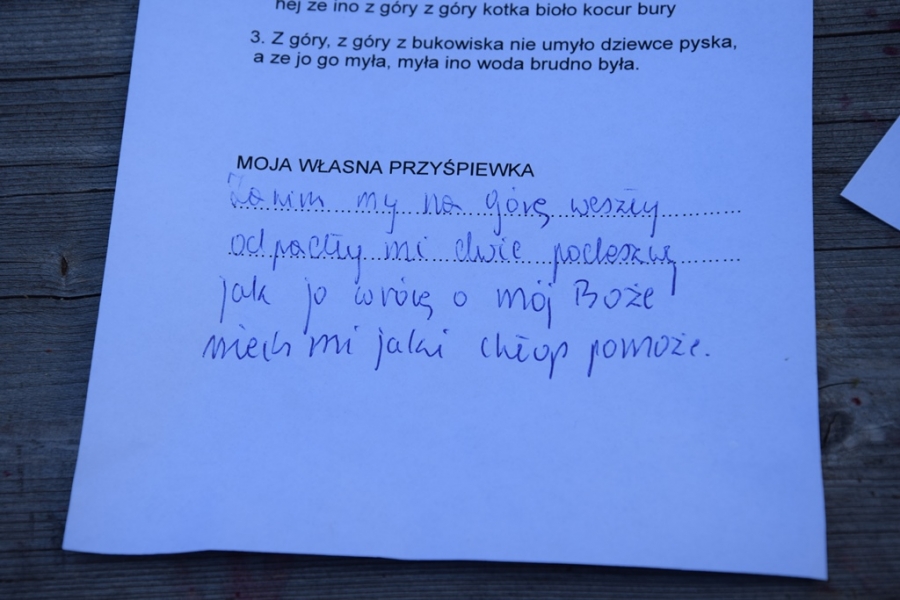 hej ze ino z góry z góry kotka bioło kocur bury
3. Z góry, z góry z bukowiska nie umyło dziewce pyska,
a ze jo go myła, myła ino woda brudno była.
MOJA WŁASNA PRZYŚPIEWKA
Zanim my na górę weszły
odpadły mi dwie podeszwy
jak jo wrócę o mój Boże
niech mi jaki chłop pomoże.